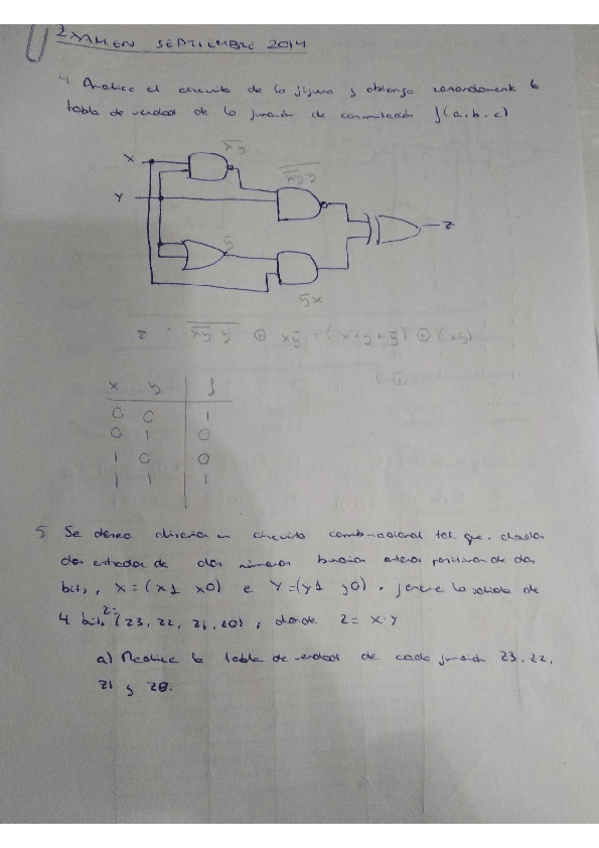 EXAMEN SEPTIEMBRE 2014
4 Analice el circuito de la figura y obtenga razonadamente la
tabla de verdad de la función de conmutación f(a,b,c)
x̅y̅
X
Y
z
5x
x y f
0 0 1
0 1 0
1 0 0
1 1 1
5 Se desea diseñar un circuito combinacional tal que, dadas
dos entradas de dos números binarios enteros positivos de dos
bits, X=(x1 x0) e Y=(y1 y0), genere la salida de
4 bits Z=(z3, z2, z1, z0), donde Z=X·Y
a) Realice la tabla de verdad de cada función z3, z2,
z1 y z0.